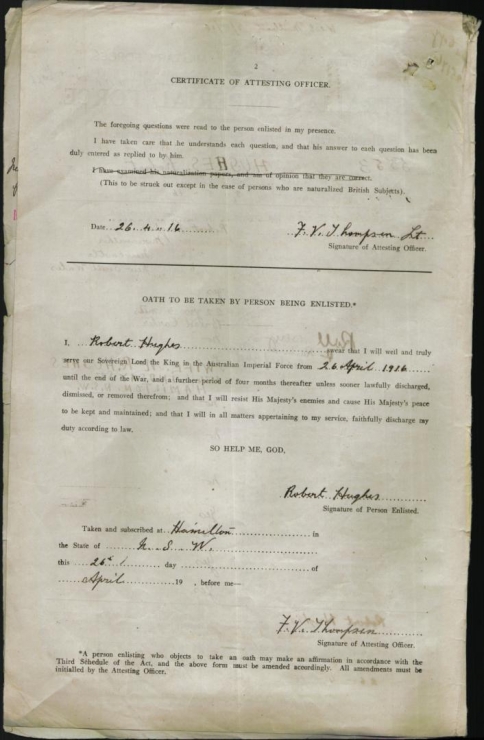 2
CERTIFICATE OF ATTESTING OFFICER.
The foregoing questions were read to the person enlisted in my presence.
I have taken care that he understands each question, and that his answer to each question has been
duly entered as replied to by him.
I have examined his naturalization papers, and am of opinion that they are correct.
(This to be struck out except in the case of persons who are naturalized British Subjects).
Date 26.4.16 F. V. Thompson Lt.
Signature of Attesting Officer.
OATH TO BE TAKEN BY PERSON BEING ENLISTED.*
I, Robert Hughes swear that I will well and truly
serve our Sovereign Lord the King in the Australian Imperial Force from 26 April 1916
until the end of the War, and a further period of four months thereafter unless sooner lawfully discharged,
dismissed, or removed therefrom; and that I will resist His Majesty's enemies and cause His Majesty's peace
to be kept and maintained; and that I will in all matters appertaining to my service, faithfully discharge my
duty according to law.
SO HELP ME, GOD.
Robert Hughes
Signature of Person Enlisted.
Taken and subscribed at Hamilton in
the State of N. S. W.
this 26 day of
April 19 , before me—
F. V. Thompson
Signature of Attesting Officer.
*A person enlisting who objects to take an oath may make an affirmation in accordance with the
Third Schedule of the Act, and the above form must be amended accordingly. All amendments must be
initialled by the Attesting Officer.